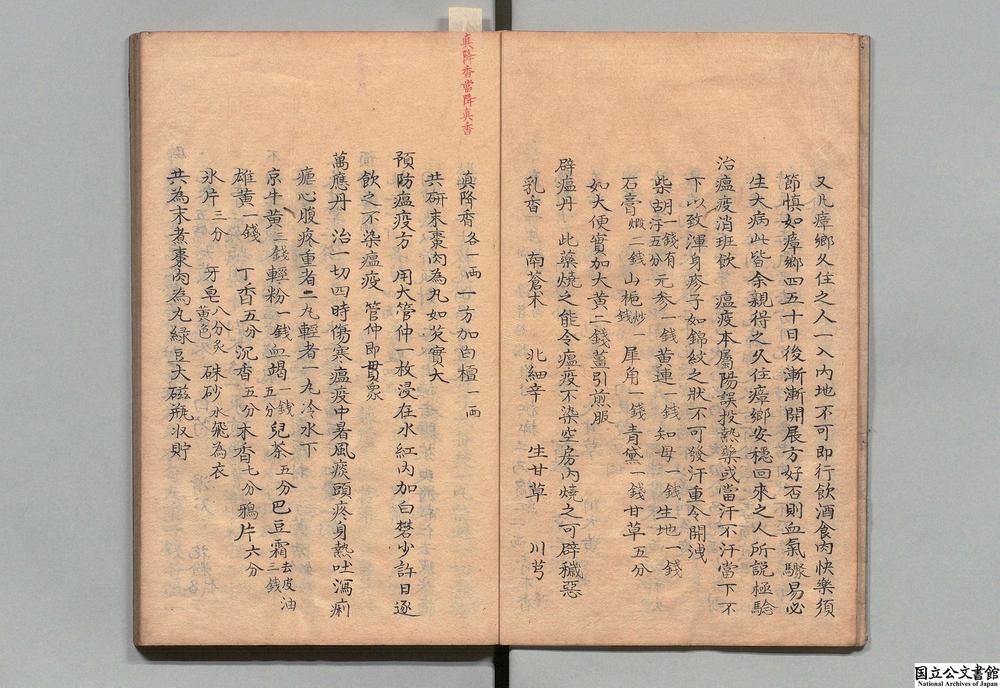 又凡瘴鄉久住之人一入內地不可即行飲酒食肉快樂須
節慎如瘴鄉四五十日後漸漸開展方好否則血氣驟易必
生大病此皆余親得之久住瘴鄉安穩回來之人所說極驗
治瘟疫消班飲 瘟疫本屬陽誤投熱藥或當汗不汗當下不
下以致渾身疹子如錦紋之狀不可發汗重令開洩
柴胡一錢有汗五分元参一錢黃連一錢知母一錢生地一錢
石膏煅二錢山梔炒一錢犀角一錢青黛一錢甘草五分
如大便實加大黃二錢薑引煎服
辟瘟丹 此藥燒之能令瘟疫不染空房內燒之可辟穢惡
乳香 南蒼术 北細辛 生甘草 川芎
真降香各一兩一方加白檀一兩
共研末棗肉為丸如芡實大
預防瘟疫方 用大管仲一枚浸在水缸內加白礬少許日逐
飲之不染瘟疫 管仲即貫衆
萬應丹 治一切四時傷寒瘟疫中暑風痰頭疼身熱吐瀉痢
瘧心腹疼重者二丸輕者一丸冷水下
京牛黃三錢輕粉一錢血竭一錢五分兒茶五分巴豆霜去皮油三錢
雄黃一錢 丁香五分沉香五分木香七分鴉片六分
氷片三分 牙皂八分炙黃色硃砂水飛為衣
共為末煮棗肉為丸綠豆大磁瓶收貯
真降香當降真香
国立公文書館
National Archives of Japan